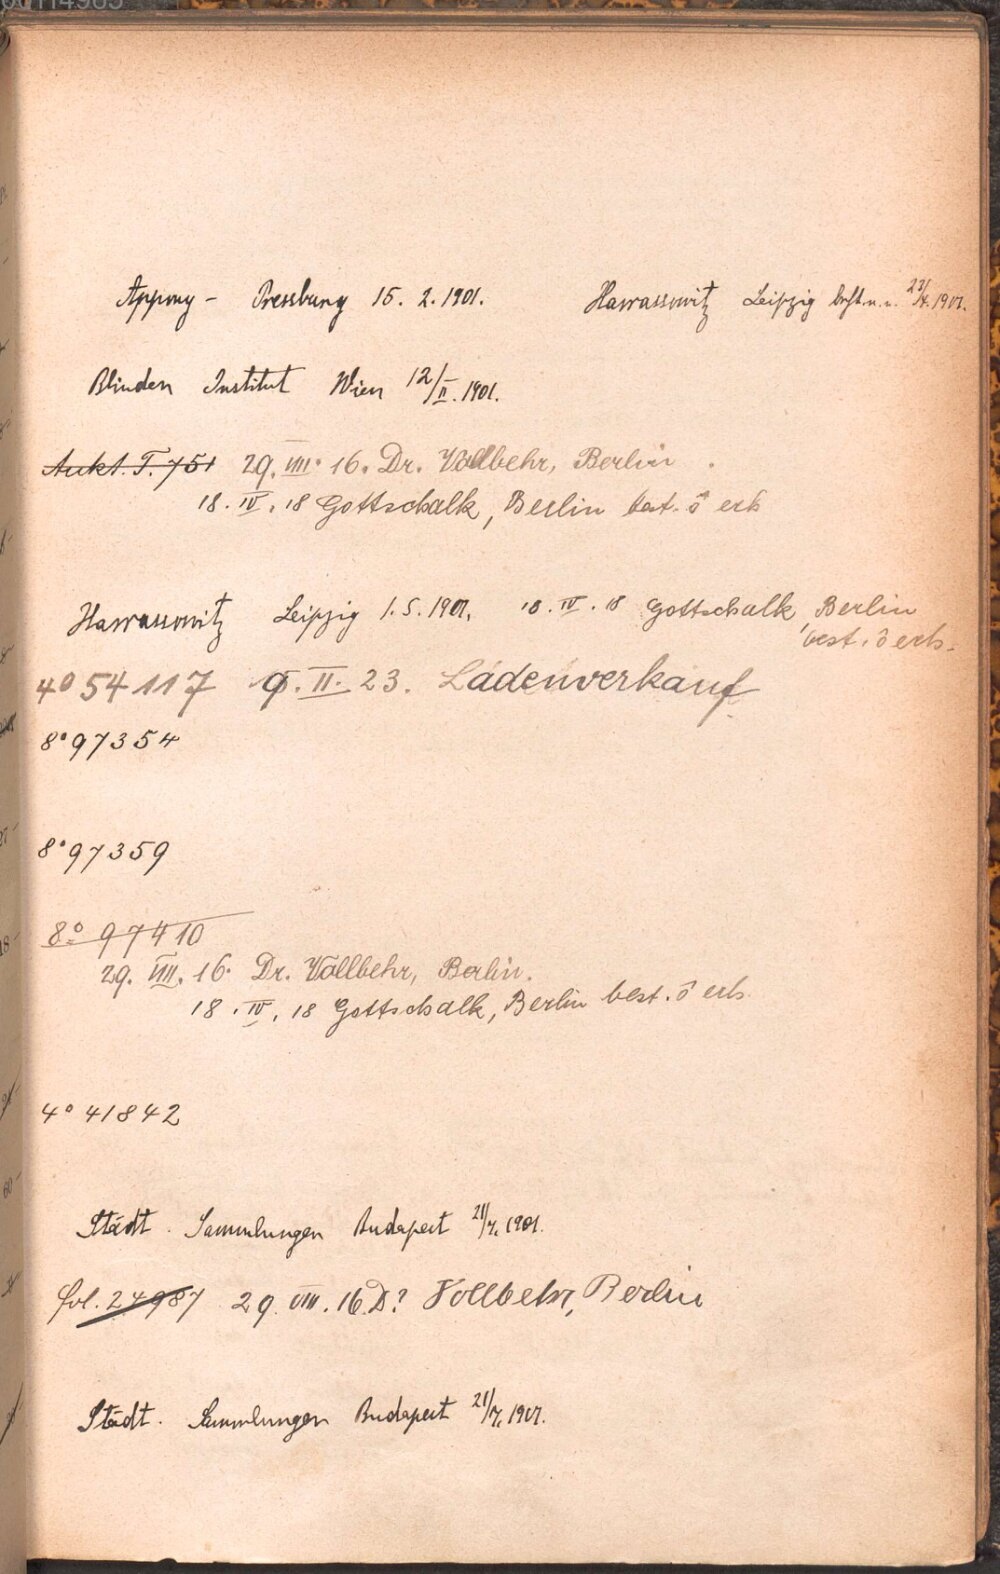 Appony - Pressburg 15. 2. 1901. Harrassowitz Leipzig 23/4. 1901.
Blinden Institut Wien 12/II. 1901.
Aukt. T. 751 29. VIII. 16. Dr. Vollbehr, Berlin.
18. IV. 18 Gottschalk, Berlin best. ö erh
Harrassowitz Leipzig 1. 5. 1901. 18. IV. 18 Gottschalk, Berlin
best. ö erh.
4° 54117 9. II. 23. Ladenverkauf
8° 97354
8° 97359
8° 97410
29. VIII. 16. Dr. Vollbehr, Berlin.
18. IV. 18 Gottschalk, Berlin best. ö erh.
4° 41842
Städt. Sammlungen Budapest 21/7. 1901.
fol. 24987 29. VIII. 16 Dr Vollbehr, Berlin
Städt. Sammlungen Budapest 21/7. 1901.